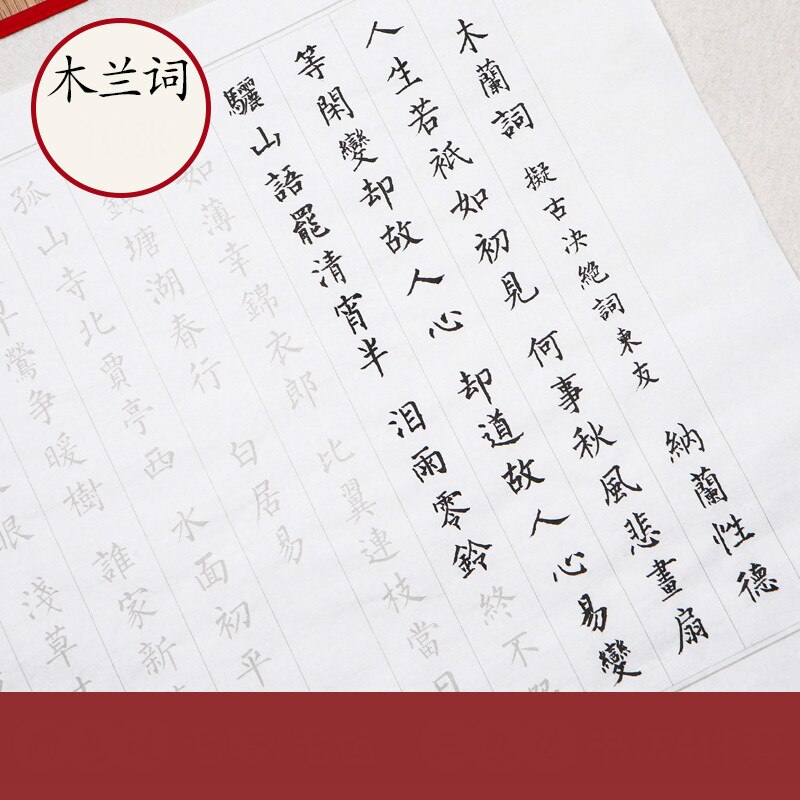 木兰词
木蘭詞 擬古决絶詞柬友 納蘭性德
人生若衹如初見 何事秋風悲畫扇
等閑變却故人心 却道故人心易變
驪山語罷清宵半 泪雨零鈴終不
如薄幸錦衣郎 比翼連枝當日
錢塘湖春行 白居易
孤山寺北賈亭西 水面初平
早鶯争暖樹 誰家新
眼 淺草